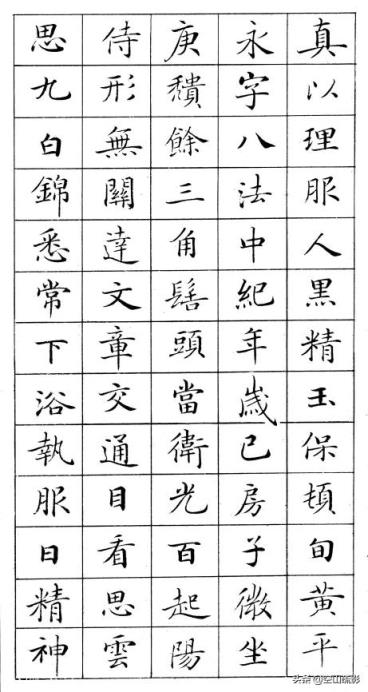 真以理服人黑精玉保頓旬黃平
永字八法中紀年歲已房子微坐
庚穨餘三角髻頭當衛光百起陽
侍形無關達文章交通目看思雲
思九白錦悉常下浴執服日精神
头条@空山疏影